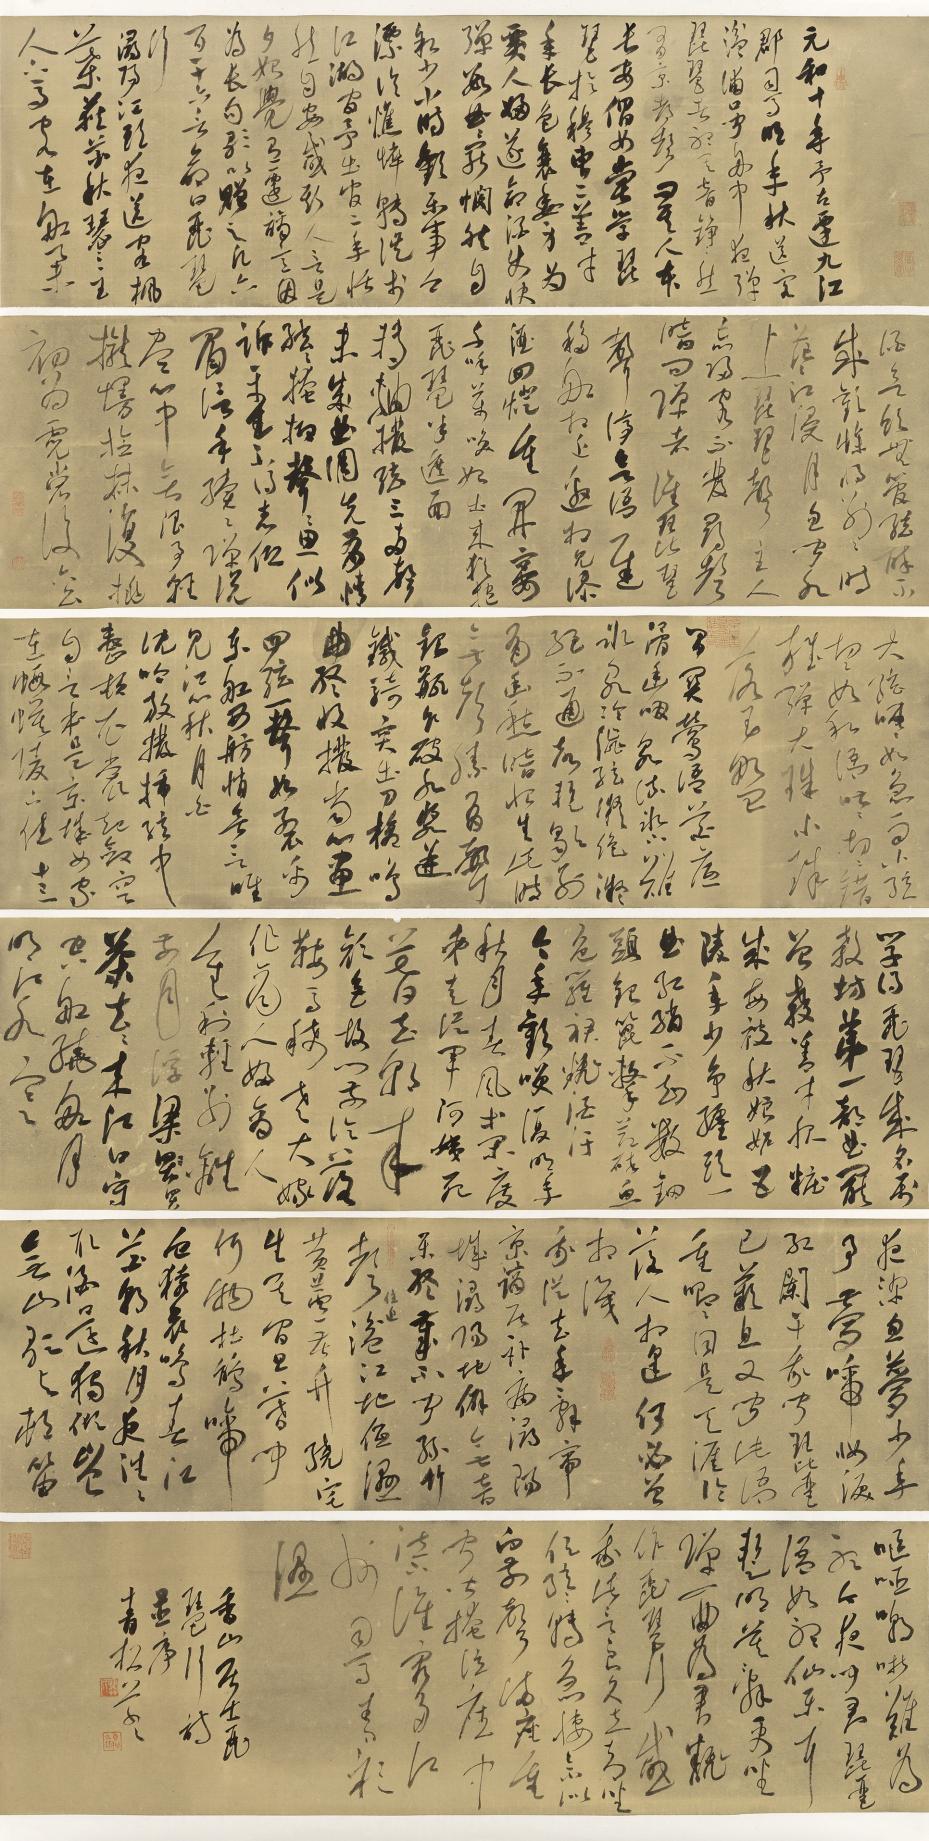 元和十年予左遷九江
郡司馬明年秋送客
湓浦口聞舟中夜彈
琵琶者聽其音錚錚然
有京都聲問其人本
長安倡女嘗學琵
琶於穆曹二善才
年長色衰委身為
賈人婦遂命酒使快
彈數曲曲罷憫然自
敘少小時歡樂事今
漂淪憔悴轉徙於
江湖間予出官二年恬
然自安感斯人言是
夕始覺有遷謫意因
為長句歌以贈之凡六
百一十六言命曰琵琶
行
潯陽江頭夜送客楓
葉荻花秋瑟瑟主
人下馬客在船舉
酒欲飲無管絃醉不
成歡慘將別別時
茫茫江浸月忽聞水
上琵琶聲主人
忘歸客不發尋聲
暗問彈者誰琵琶
聲停欲語遲
移船相近邀相見添
酒回燈重開宴
千呼萬喚始出來猶抱
琵琶半遮面
轉軸撥絃三兩聲
未成曲調先有情
絃絃掩抑聲聲思似
訴平生不得志低
眉信手續續彈說
盡心中無限事輕
攏慢撚抹復挑
初為霓裳後六么
大絃嘈嘈如急雨小絃
切切如私語嘈嘈切切錯
雜彈大珠小珠
落玉盤
間關鶯語花底
滑幽咽泉流冰下難
冰泉冷澀絃凝絕凝
絕不通聲暫歇別
有幽愁暗恨生此時
無聲勝有聲
銀瓶乍破水漿迸
鐵騎突出刀槍鳴
曲終收撥當心畫
四絃一聲如裂帛
東船西舫悄無言唯
見江心秋月白
沈吟放撥插絃中
整頓衣裳起斂容
自言本是京城女家
在蝦蟆陵下住十三
學得琵琶成名屬
教坊第一部曲罷
曾教善才服妝
成每被秋娘妬五
陵年少爭纏頭一
曲紅綃不知數鈿
頭銀篦擊節碎血
色羅裙翻酒污
今年歡笑復明年
秋月春風等閒度
弟走從軍阿姨死
暮去朝來
顏色故門前冷落
鞍馬稀老大嫁
作商人婦商人
重利輕別離
前月浮梁買
茶去去來江口守
空船繞船月
明江水寒
夜深忽夢少年
事夢啼妝淚
紅闌干我聞琵琶
已歎息又聞此語
重唧唧同是天涯淪
落人相逢何必曾
相識
我從去年辭帝
京謫居臥病潯陽
城潯陽地僻無音
樂終歲不聞絲竹
聲住近湓江地低濕
黃蘆苦竹繞宅
生其間旦暮聞
何物杜鵑啼
血猿哀鳴春江
花朝秋月夜往往
取酒還獨傾豈
無山歌與村笛
嘔啞嘲哳難為
聽今夜聞君琵琶
語如聽仙樂耳
暫明莫辭更坐
彈一曲為君翻
作琵琶行感
我此言良久立卻坐
促絃轉急淒淒不似
向前聲滿座重
聞皆掩泣座中
泣誰最多江
州司馬青衫
濕
香山居士琵
琶行詩
並序